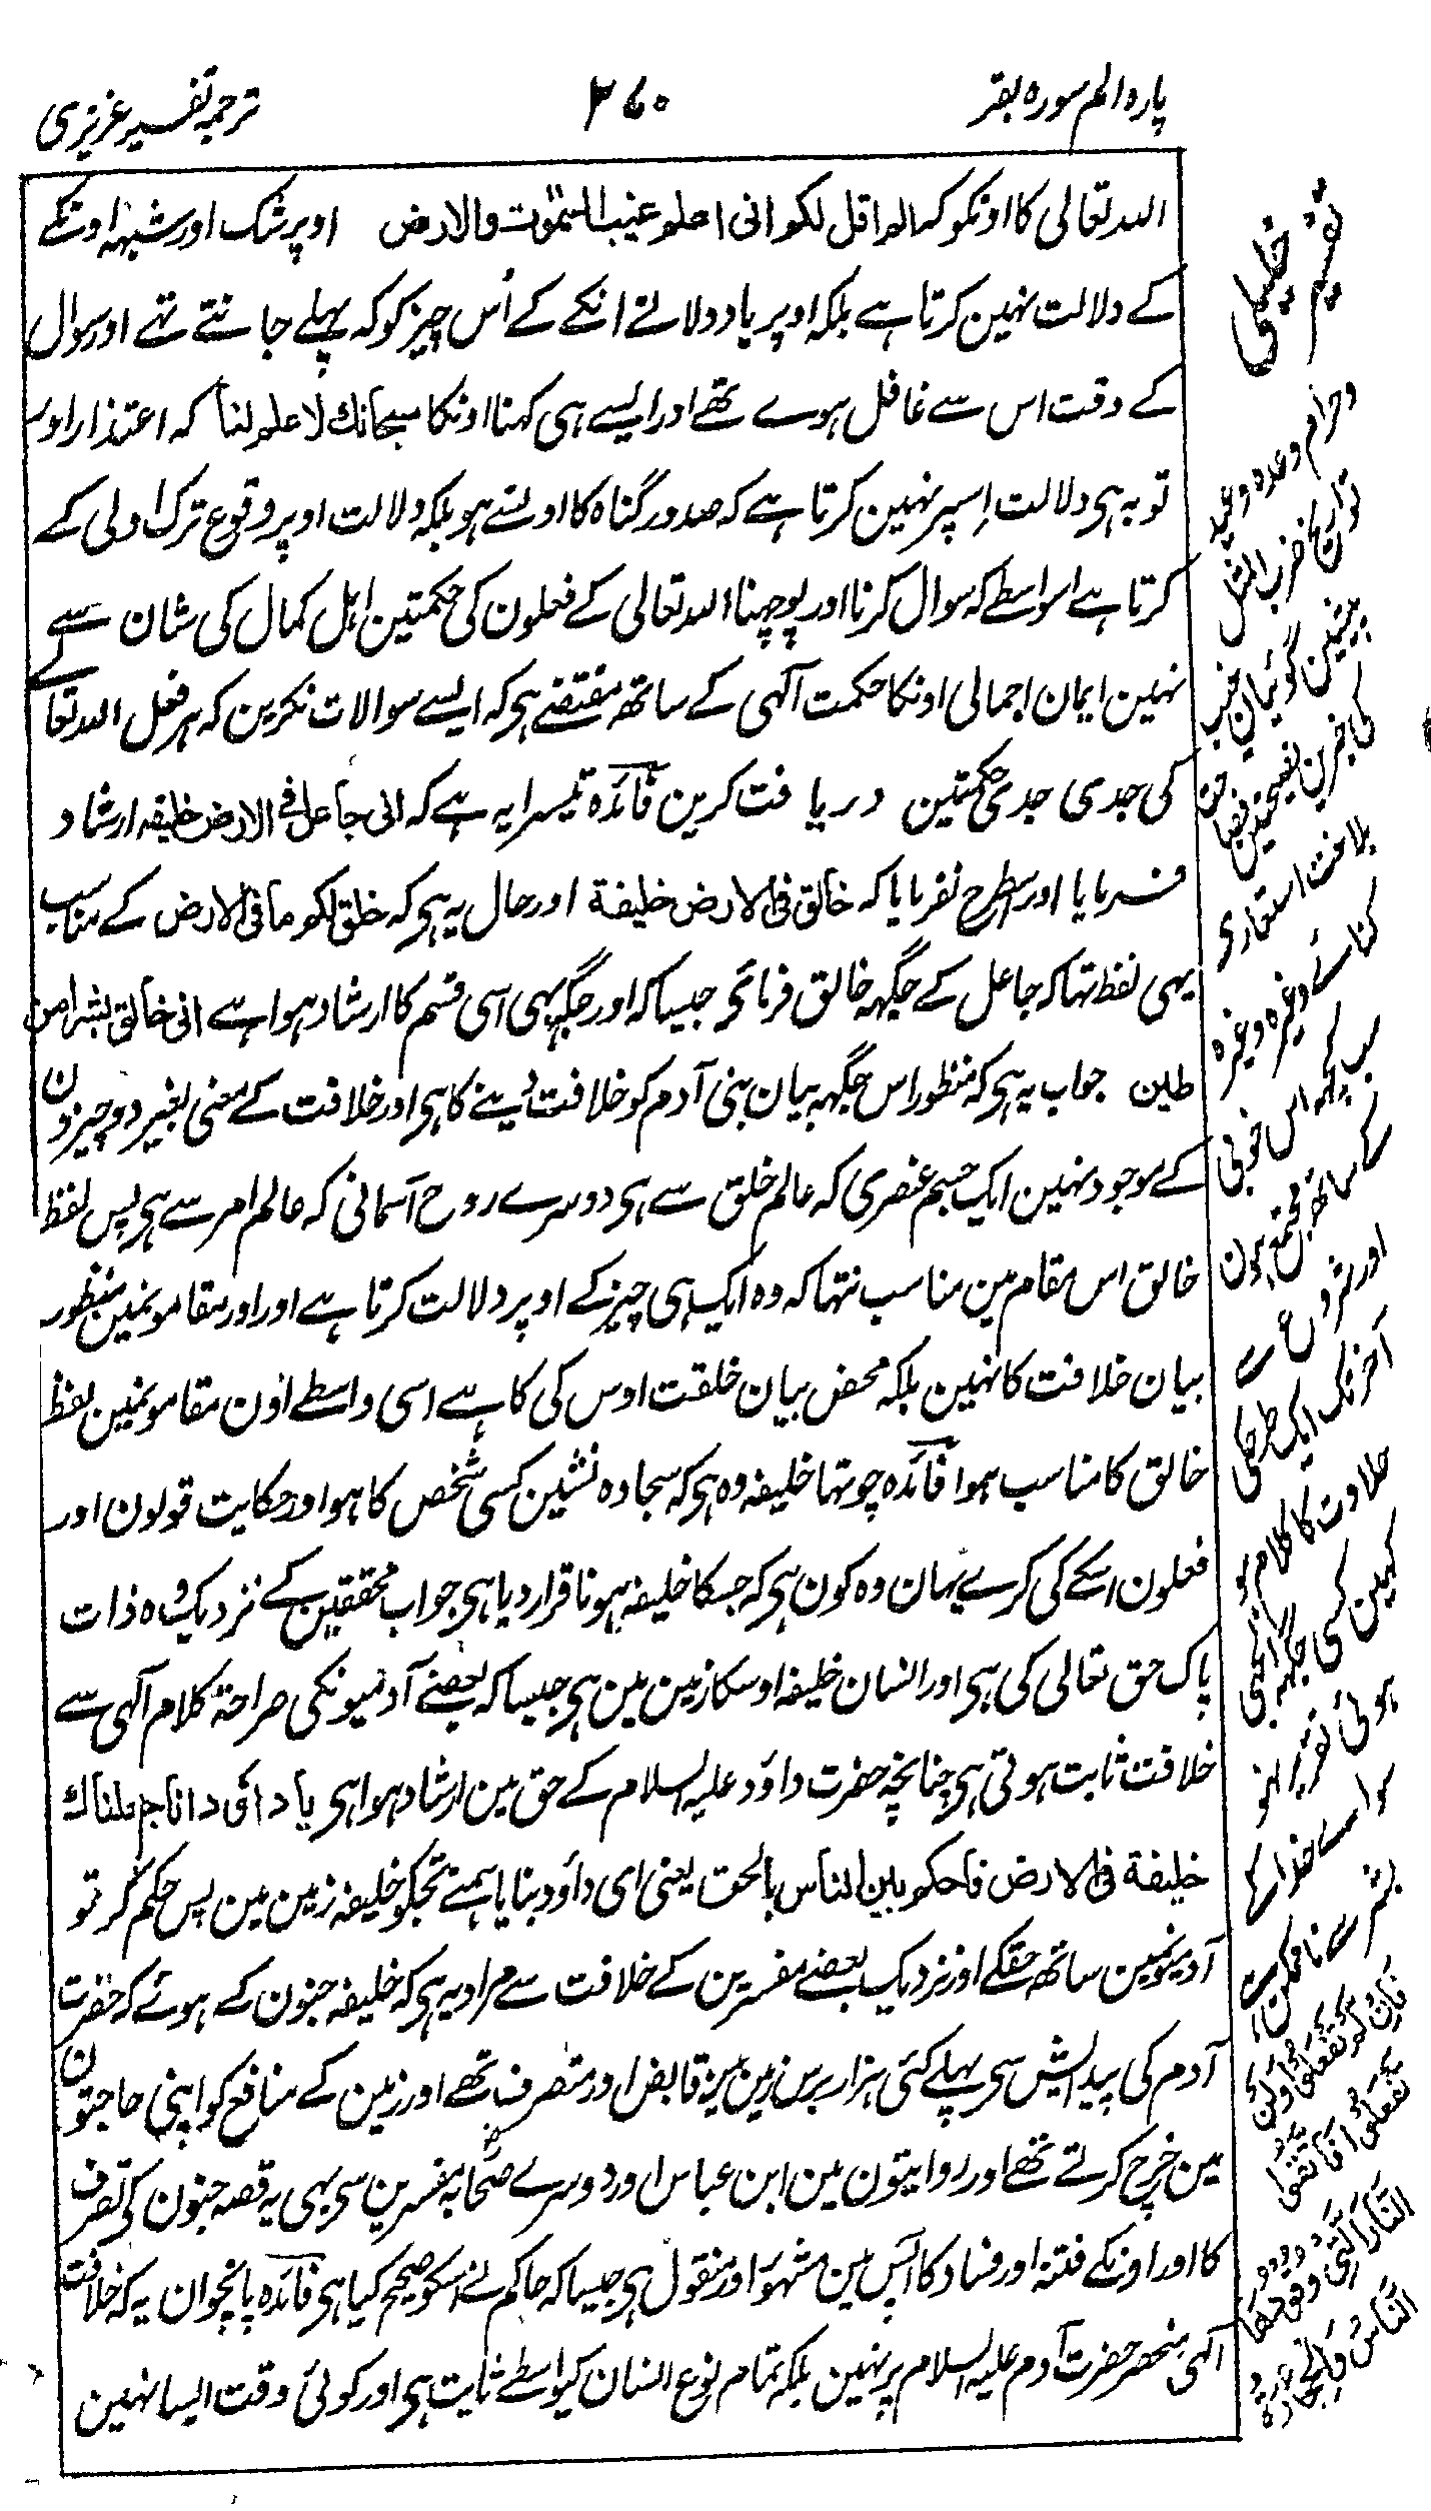 پاره الم سوره بقر
۳۶۰
ترجمہ تفسیر عزیزی
اللہ تعالی کا اونکو کہ الم اقل لکم انی اعلم غیب السموت والارض اوپر شک اور شبہہ اونکے
کے دلالت نہین کرتا ہے بلکہ اوپر یاد دلانے انکے کے اُس چیز کو کہ پہلے جانتے تہے اور سوال
کے وقت اس سے غافل ہوے تھے اور ایسے ہی کہنا اونکا سبحانك لا علم لنا کہ اعتذار اور
توبہ ہی دلالت اِسپر نہین کرتا ہے کہ صدور گناہ کا اونسے ہو بلکہ دلالت اوپر وقوع ترک اولی کے
کرتا ہے اسواسطے کہ سوال کرنا اور پوچہنا اللہ تعالی کے فعلون کی حکمتین اہل کمال کی شان سے
نہین ایمان اجمالی اونکا حکمت آلہی کے ساتھ مقتضے ہی کہ ایسے سوالات نکرین کہ ہر فعل اللہ تعا
کی جدی جدی حکمتین دریافت کرین فائدہ تیسرا یہ ہے کہ انی جاعل فے الارض خلیفہ ارشاد
فرمایا اور اسطرح نفرمایا کہ خالق فی الارض خلیفة اور حال یہ ہی کہ خلق لکم ما فی الارض کے مناسب
یہی لفظ تہا کہ جاعل کے جگہہ خالق فرمائی جیسا کہ اور جگہہ بہی اسی قسم کا ارشاد ہوا ہے انی خالق بشرا من
طین جواب یہ ہی کہ منظور اس جگہہ بیان بنی آدم کو خلافت دینے کا ہی اور خلافت کے معنی بغیر دو چیزون
کے موجود نہین ایک جسم عنصری کہ عالم خلق سے ہی دوسرے روح آسمانی کہ عالم امر سے ہی پس لفظ
خالق اس مقام مین مناسب نتہا کہ وہ ایک ہی چیز کے اوپر دلالت کرتا ہے اور اور مقامونمین منظور
بیان خلافت کا نہین بلکہ محض بیان خلقت اوس کی کا ہے اسی واسطے اون مقامونمین لفظ
خالق کا مناسب ہوا فائدہ چوتہا خلیفہ وہ ہی کہ سجادہ نشین کسی شخص کا ہو اور حکایت قولون اور
فعلون اسکے کی کرے یہان وہ کون ہی کہ جسکا خلیفہ ہونا قرار دیا ہی جواب محققین کے نزدیک وہ ذات
پاک حق تعالی کی ہی اور انسان خلیفہ اوسکا زمین مین ہی جیسا کہ بعضے آدمیونکی صراحة کلام آلہی سے
خلافت ثابت ہوتی ہی چنانچہ حضرت داؤد علیہ السلام کے حق مین ارشاد ہوا ہی یا داؤد انا جعلناك
خلیفة فی الارض فاحکم بین الناس بالحق یعنی ای داؤد بنایا ہمنے تجکو خلیفہ زمین مین پس حکم کر تو
آدمیونمین ساتھ حقکے اور نزدیک بعضے مفسرین کے خلافت سے مراد یہ ہی کہ خلیفہ جنون کے ہوئے کہ حضرت
آدم کی پیدایش سی پہلے کئی ہزار برس زمین مین قابض اور متصرف تھے اور زمین کے منافع کو اپنی حاجتون
مین خرچ کرتے تھے اور روایتون مین ابن عباس اور دوسرے صحابہ مفسرین سی بہی یہ قصہ جنون کی تصرف
کا اور اونکے فتنہ اور فساد کا آپس مین مشہور اور منقول ہی جیسا کہ حاکم نے اسکو صحیح کیا ہی فائدہ پانچوان یہ کہ خلافت
آلہی منحصر حضرت آدم علیہ السلام پر نہین بلکہ تمام نوع انسان کیواسطے ثابت ہی اور کوئی وقت ایسا نہین
وحرام وعدہ وعید
بلاغت استعاری
وغیرہ وغیرہ
سب کے
اس خوبی
اور شروع سے
آخر تک ایک طرحکی
حلاوت کا کلام ہو
کہین کسی جگہہ
ہوئی
سواے خدا کے
بشر سے ناممکن ہے
فَاِنْ لَّمْ تَفْعَلُوْا وَلَنْ
تَفْعَلُوْا فَاتَّقُوا
النَّارَ الَّتِيْ وَقُوْدُهَا
النَّاسُ وَالْحِجَارَةُ